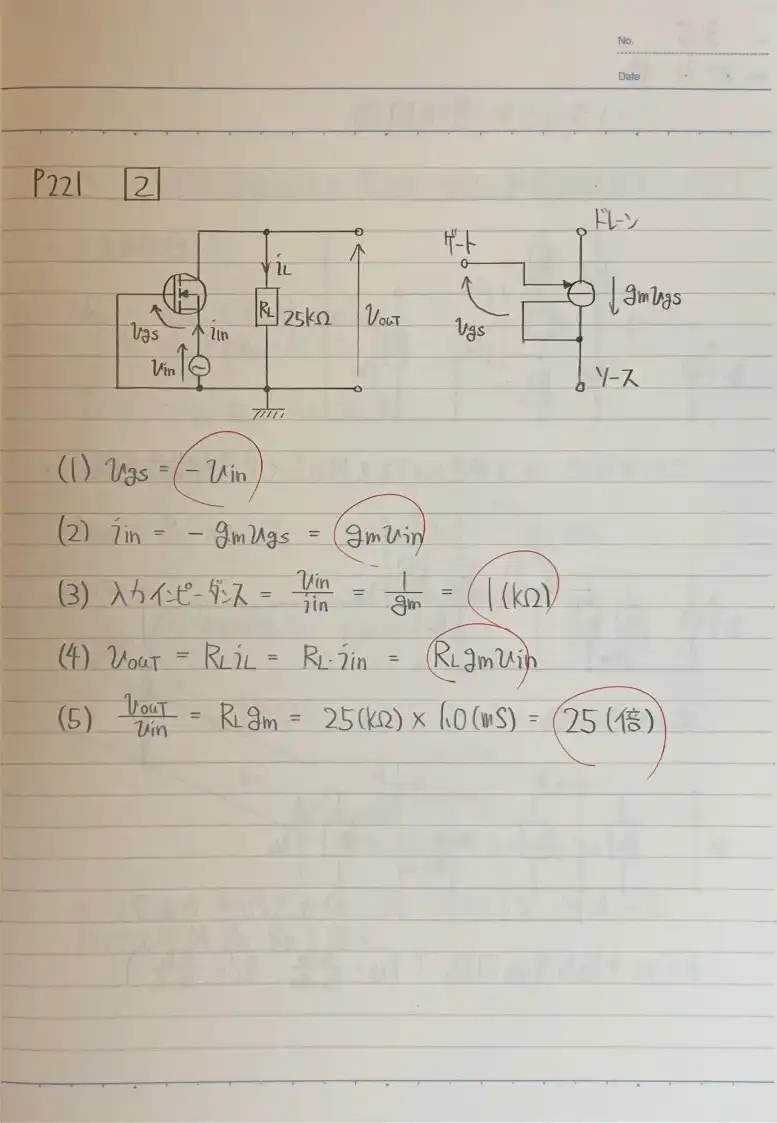 No.
Date
P221 2
ドレーン
ゲート
iL
gmvgs
RL 25kΩ
vOUT
vgs
iin
vgs
vin
ソース
(1) vgs = -vin
(2) iin = -gmvgs = gmvin
(3) 入力インピーダンス = vin/iin = 1/gm = 1(kΩ)
(4) vOUT = RLiL = RL·iin = RLgmvin
(5) vOUT/vin = RLgm = 25(kΩ) × 1.0(mS) = 25(倍)